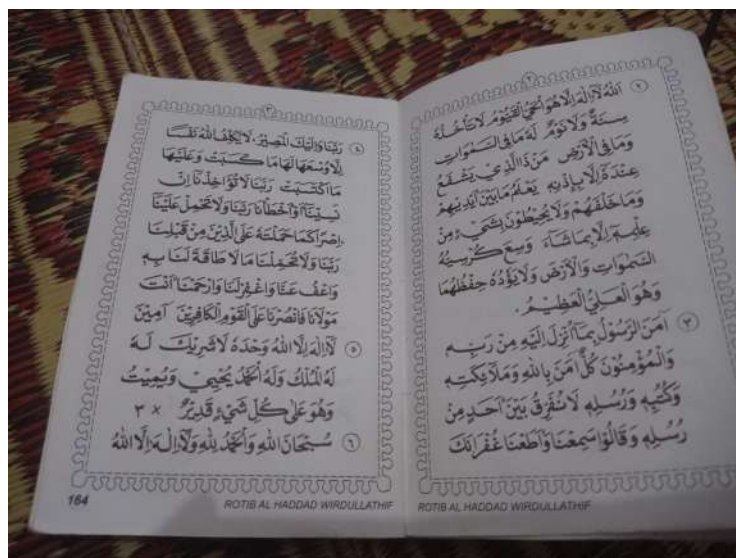 ٢
٢ اَللهُ لَآاِلٰهَ اِلَّا هُوَ اَلْحَيُّ الْقَيُّوْمُ لَاتَأْخُذُهُ
سِنَةٌ وَلَا نَوْمٌ لَهُ مَافِى السَّمٰوَاتِ
وَمَا فِى الْاَرْضِ مَنْ ذَا الَّذِيْ يَشْفَعُ
عِنْدَهُ اِلَّا بِاِذْنِهِ يَعْلَمُ مَابَيْنَ اَيْدِيْهِمْ
وَمَاخَلْفَهُمْ وَلَا يُحِيْطُوْنَ بِشَيْءٍ مِنْ
عِلْمِهِ اِلَّا بِمَاشَآءَ وَسِعَ كُرْسِيُّهُ
السَّمٰوَاتِ وَالْاَرْضَ وَلَا يَؤُدُهُ حِفْظُهُمَا
وَهُوَ الْعَلِيُّ الْعَظِيْمُ.
٣ اٰمَنَ الرَّسُوْلُ بِمَآ اُنْزِلَ اِلَيْهِ مِنْ رَبِّهِ
وَالْمُؤْمِنُوْنَ كُلٌّ اٰمَنَ بِاللهِ وَمَلَآئِكَتِهِ
وَكُتُبِهِ وَرُسُلِهِ لَانُفَرِّقُ بَيْنَ اَحَدٍ مِنْ
رُسُلِهِ وَقَالُوْا سَمِعْنَا وَاَطَعْنَا غُفْرَانَكَ
ROTIB AL HADDAD WIRDULLATHIF
٣
٤ رَبَّنَا وَاِلَيْكَ الْمَصِيْرُ، لَايُكَلِّفُ اللهُ نَفْسًا
اِلَّا وُسْعَهَا لَهَا مَا كَسَبَتْ وَعَلَيْهَا
مَا اكْتَسَبَتْ رَبَّنَا لَا تُؤَاخِذْنَا اِنْ
نَسِيْنَآ اَوْ اَخْطَأْنَا رَبَّنَا وَلَا تَحْمِلْ عَلَيْنَآ
اِصْرًا كَمَا حَمَلْتَهُ عَلَى الَّذِيْنَ مِنْ قَبْلِنَا
رَبَّنَا وَلَا تُحَمِّلْنَا مَالَا طَاقَةَ لَنَا بِهِ
وَاعْفُ عَنَّا وَاغْفِرْلَنَا وَارْحَمْنَآ اَنْتَ
مَوْلَانَا فَانْصُرْنَا عَلَى الْقَوْمِ الْكَافِرِيْنَ آمِيْنَ
٥ لَآاِلٰهَ اِلَّا اللهُ وَحْدَهُ لَاشَرِيْكَ لَهُ
لَهُ الْمُلْكُ وَلَهُ الْحَمْدُ يُحْيِيْ وَيُمِيْتُ
وَهُوَ عَلَى كُلِّ شَيْءٍ قَدِيْرٌ × ٣
٦ سُبْحَانَ اللهِ وَالْحَمْدُ لِلهِ وَلَآاِلٰهَ اِلَّا اللهُ
164
ROTIB AL HADDAD WIRDULLATHIF